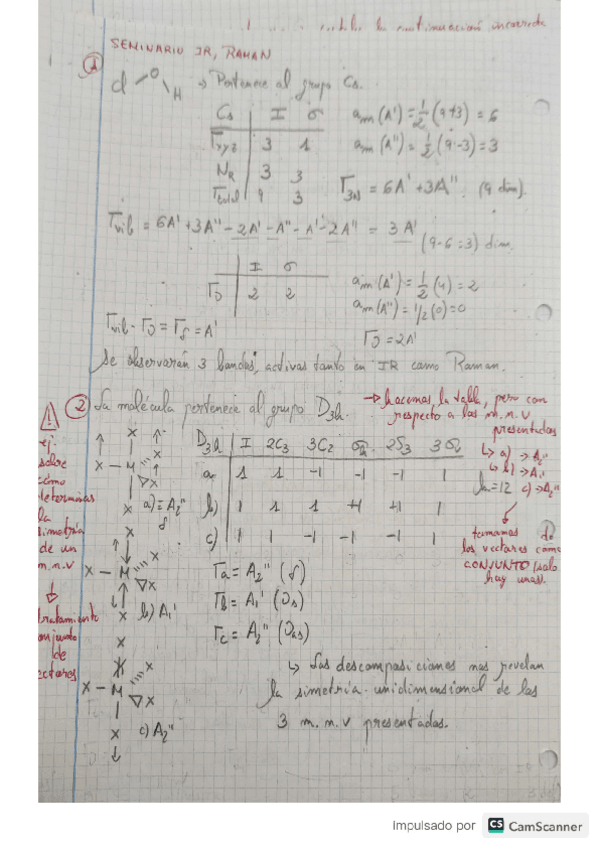 la continuación incorrecta
SEMINARIO IR, RAMAN
① Cl O H → Pertenece al grupo Cs.
Cs I σ
Γxyz 3 1
NR 3 3
Γtotal 9 3
am(A') = 1/2 (9+3) = 6
am(A'') = 1/2 (9-3) = 3
Γ3N = 6A' + 3A''. (9 dim).
Γvib = 6A' + 3A'' - 2A' - A'' - A' - 2A'' = 3A' (9-6=3) dim.
I σ
ΓJ 2 2
am(A') = 1/2 (4) = 2
am(A'') = 1/2 (0) = 0
Γvib - ΓJ = Γδ = A'
ΓJ = 2A'
Se observarán 3 bandas, activas tanto en IR como Raman.
② La molécula pertenece al grupo D3h.
→ hacemos la tabla, pero con
respecto a los m.m.v
presentadas
↳ a) → A2''
↳ b) → A1'
c) → A2''
h=12
D3h I 2C3 3C2 σh 2S3 3σv
a 1 1 -1 -1 -1 1
b) 1 1 1 +1 +1 1
c) 1 1 -1 -1 -1 1
tomamos
los vectores como
CONJUNTO (solo
hay uno).
ej.
sobre
cómo
determinas
la
simetría
de un
m.m.v
↓
tratamiento
conjunto
de
vectores
X X-M X X X
a) = A2''
δ
X X-M X X X
b) A1'
X X-M X X X
c) A2''
Γa = A2'' (δ)
Γb = A1' (Js)
Γc = A2'' (Jas)
↳ Las descomposiciones nos revelan
la simetría unidimensional de los
3 m.m.v presentadas.
Impulsado por CS CamScanner